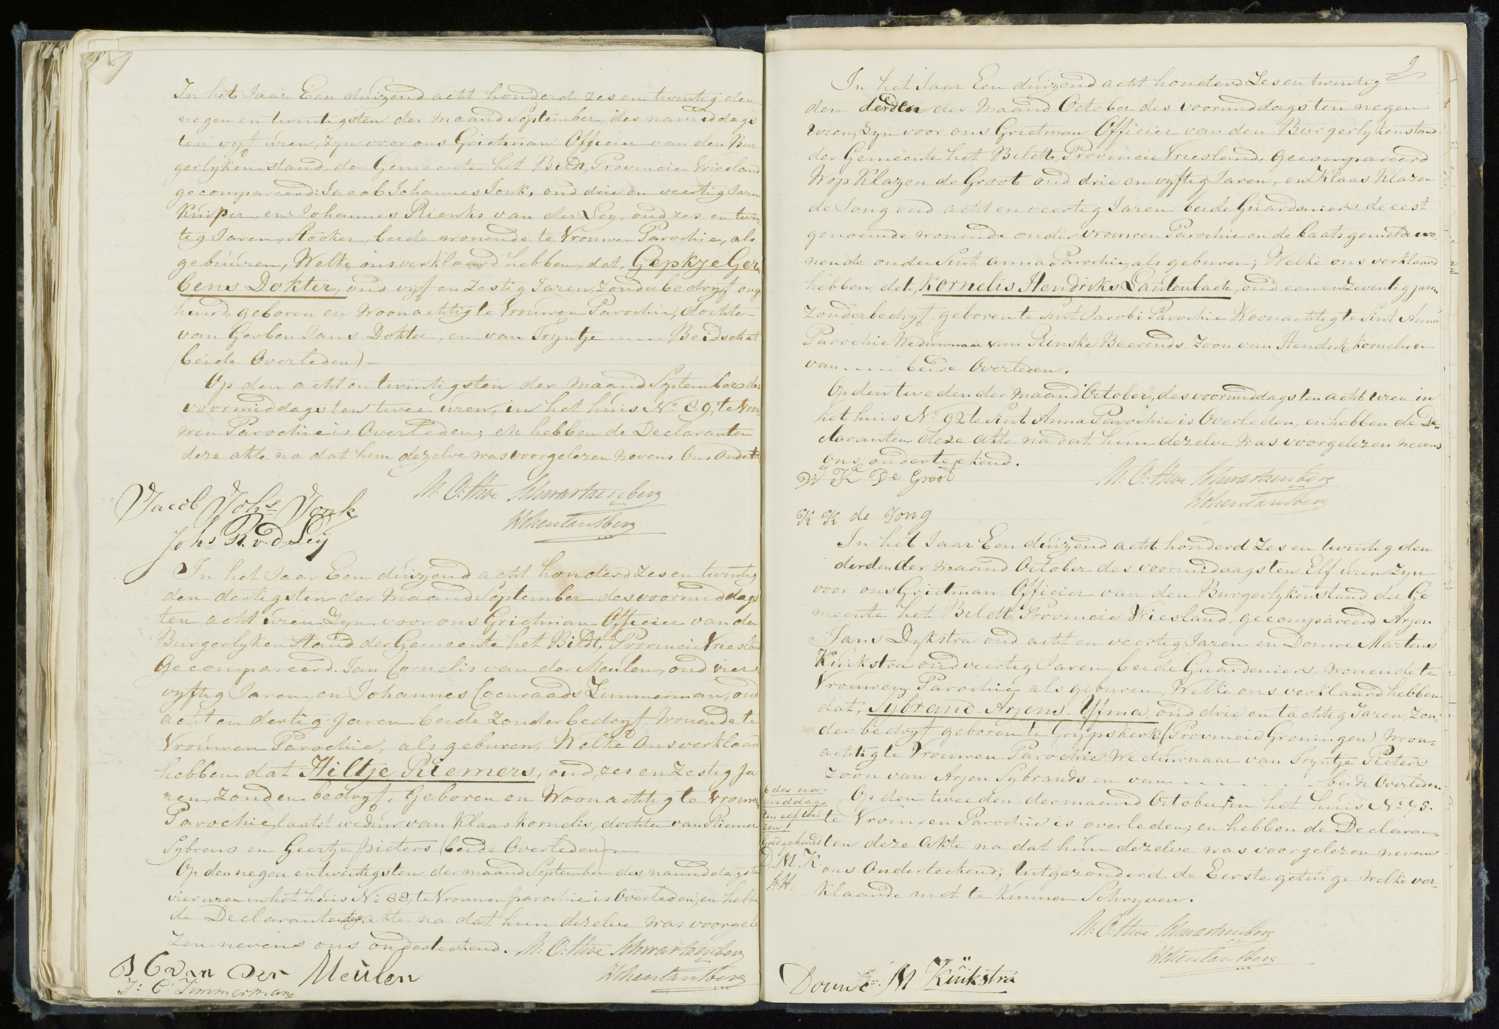 In het Jaar Een duizend acht honderd zes en twintig den
negen en twintigsten der maand September des namiddags
ten vyf uren, Zyn voor ons Grietman Officier van den Bur
gerlyken stand der Gemeente het Bildt, Provincie Vriesland
gecompareerd: Jacob Johannes Jonk, oud drie en veertig Jaren
Kuiper en Johannes Rienks van der Ley, oud zes en twin
tig Jaren, beide wonende te Vrouwen Parochie, als
gebuuren, Welke ons verklaard hebben, dat, Gepkje Ger
bens Dokter, oud vyf en Zestig Jaren, Zonder bedryf
geboren en Woonachtig te Vrouwen Parochie, dochter
van Gerben Jans Dokter, en van Tryntje
(beide Overleden)
Op den acht en twintigsten der Maand September des
voormiddags ten twee uren, in het huis No 39, te Vrou
wen Parochie is Overleden; en hebben de Declaranten
deze akte na dat hem dezelve was voorgelezen nevens Ons
Jacob Johs Jonk
Johs R. v. d. Ley
In het Jaar Een duizend acht honderd zes en twintig
den dertigsten der Maand September des voormiddags
ten acht uren Zyn voor ons Grietman Officier van den
Burgerlyken Stand der Gemeente het Bildt, Provincie Vriesland
Gecompareerd: Jan Cornelis van der Meulen, oud vier
vyftig Jaren en Johannes Coenraads Zimmerman, oud
acht en dertig Jaren beide Zonder bedryf Wonende te
Vrouwen Parochie, als geburen, Welke Ons verklaard
hebben dat Hiltje Riemers, oud, zes en Zestig Ja
ren, Zonder bedryf, Geboren en Woonachtig te Vrouwen
Parochie, laatst weduwe van Klaas Kornelis, dochter van Riemer
Sybrens en Geertje Pieters (beide Overleden)
Op den negen en twintigsten der maand September des namiddags ten
vier uren in het huis No 38, te Vrouwen parochie is Overleden; en hebben
de Declaranten akte na dat hun dezelve was voorgele
zen nevens ons onderteekend.
J C van der Meulen
J: C: Zimmerman
In het Jaar Een duizend acht honderd Zes en twintig
den derden der Maand October des voormiddags ten negen
uren, Zyn voor ons Grietman Officier van den Burgerlyken stand
der Gemeente het Bildt, Provincie Vriesland, gecompareerd
Wop Klazen de Groot oud drie en vyftig Jaren, en Klaas Klazen
de Jong oud acht en veertig Jaren beide Guardeniers de eerst
genoemde wonende onder Vrouwen Parochie en de laatstgemelde wo
nende onder Sint Anna Parochie, als geburen; Welke ons verklaard
hebben, dat, Kornelis Hendriks Lautenbach, oud een en zeventig jaren
Zonder bedryf, geboren te Sint Jacobi Parochie Woonachtig te Sint Anna
Parochie Weduwnaar van Rinske Beerends Zoon van Hendrik Kornelis en
van beide Overleden.
Op den tweeden der maand October, des voormiddags ten acht uren in
het huis No 92 te Sint Anna Parochie is Overleden, en hebben de De
claranten deze akte na dat hem dezelve was voorgelezen nevens
ons onderteekend.
W Kn De Groot
K K de Jong
In het Jaar Een duizend acht honderd Zes en twintig den
derden der maand October des voormiddaags ten Elf uren Zyn
voor ons Grietman Officier van den Burgerlyken stand der Ge
meente het Bildt Provincie Vriesland gecompareerd Arjen
Jans Dykstra oud acht en veertig Jaren en Douwe Martens
Kuikstra oud veertig Jaren, beide Guardeniers wonende te
Vrouwen Parochie als geburen, Welke ons verklaard hebben
dat, Sybrand Arjens Ufma, oud drie en tachtig Jaren, Zon
der bedryf geboren te Grypskerk (Provincie Groningen) woon
achtig te Vrouwen Parochie Weduwnaar van Tryntje Pieters
Zoon van Arjen Sybrands en van beide Overleden
Op den tweeden der maand October in het huis No 95
te Vrouwen Parochie is overleden; en hebben de Declaran
ten deze Akte na dat hun dezelve was voorgelezen nevens
ons Onderteekend; uitgezonderd de Eerste getuige welke ver
klaarde niet te kunnen Schryven.
des na
middags
ten elf
D M K
Douwe M Kuikstra